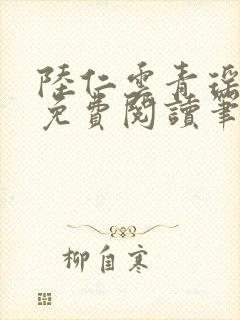 陸仁雲青瑶
免費閱讀筆
柳自寒